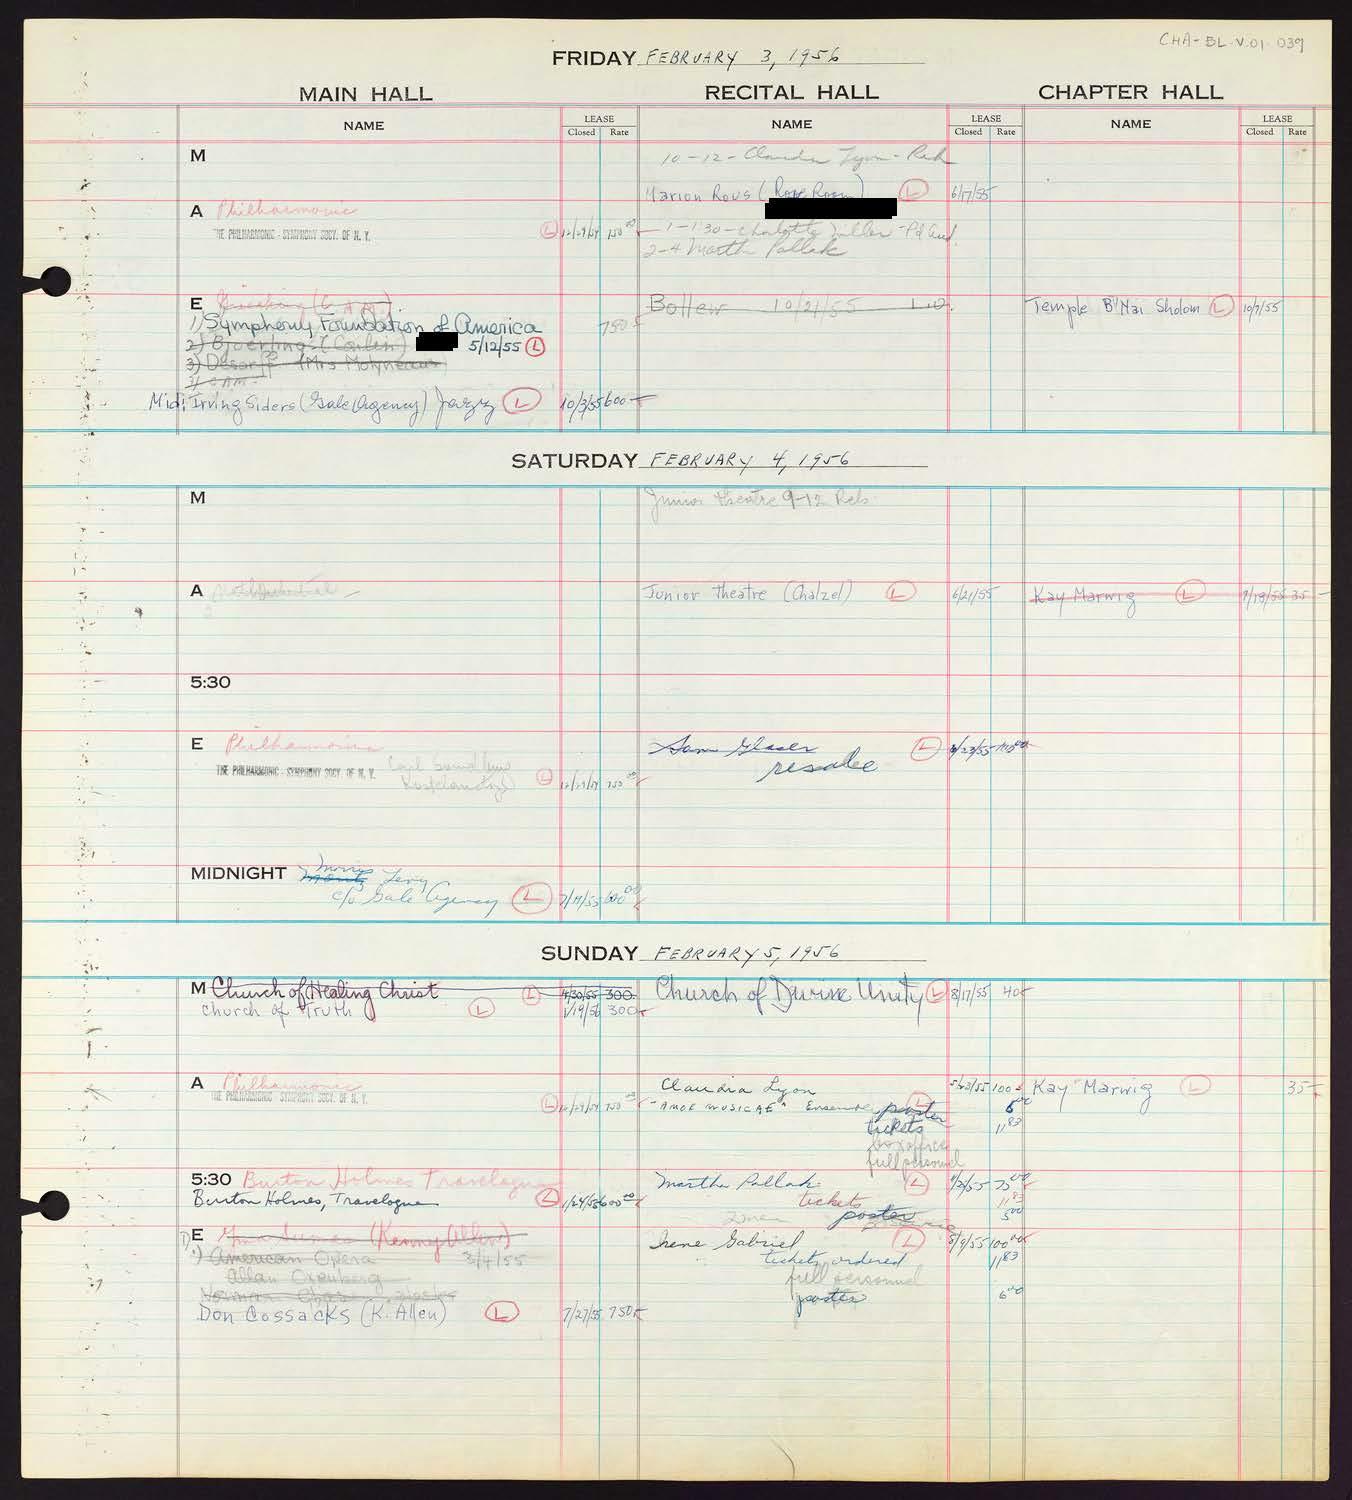 CHA-BL-V.01-039
FRIDAY FEBRUARY 3, 1956
MAIN HALL RECITAL HALL CHAPTER HALL
NAME LEASE Closed Rate NAME LEASE Closed Rate NAME LEASE Closed Rate
M 10-12- Claudia Lyon - Reh
Marion Rous (Rose Room) L 6/17/55
A Philharmonic
THE PHILHARMONIC - SYMPHONY SOCY. OF N. Y. L 12/29/54 750 00 1-1:30 - Charlotte Zuller - Pd Aud.
2-4 Martha Pollak
E Bottew 10/21/55 Temple B'Nai Sholom L 10/7/55
1) Symphony Foundation of America 750
2) Bjoerling 5/12/55 L
3) (Mrs Molyneaux
Mid: Irving Siders (Gale Agency) Jazz L 10/3/55 600
SATURDAY FEBRUARY 4, 1956
M Junior Theatre 9-12 Reh
A Junior Theatre (Chalzel) L 6/21/55 Kay Marwig L 9/19/55 35
5:30
E Philharmonic Sam Glaser L 5/23/55
THE PHILHARMONIC - SYMPHONY SOCY. OF N. Y. L 12/29/54 750 00 resalee
Kostelanetz
MIDNIGHT Morris Levy
c/o Gale Agency L 7/11/55 600 00
SUNDAY FEBRUARY 5, 1956
M Church of Healing Christ L 4/30/55 300 Church of Divine Unity L 8/17/55 40
Church of Truth L 1/19/56 300
A Philharmonic Claudia Lyon 5/23/55 100 Kay Marwig L 35
THE PHILHARMONIC - SYMPHONY SOCY. OF N. Y. L 12/29/54 750 00 "AMOE MUSICAE" Ensemble poster L 6 00
tickets 11 83
box office
full personnel
5:30 Burton Holmes Travelogue Martha Pollak L 9/21/55 75 00
Burton Holmes, Travelogue L 1/24/55 600 00 tickets 11 83
poster 5 00
E (Kenny Allen) Irene Gabriel L 8/9/55 100 00
1) American Opera 3/4/55 tickets ordered 11 83
Allan Oxenberg full personnel
Norman poster 6 00
Don Cossacks (K. Allen) L 7/27/55 750